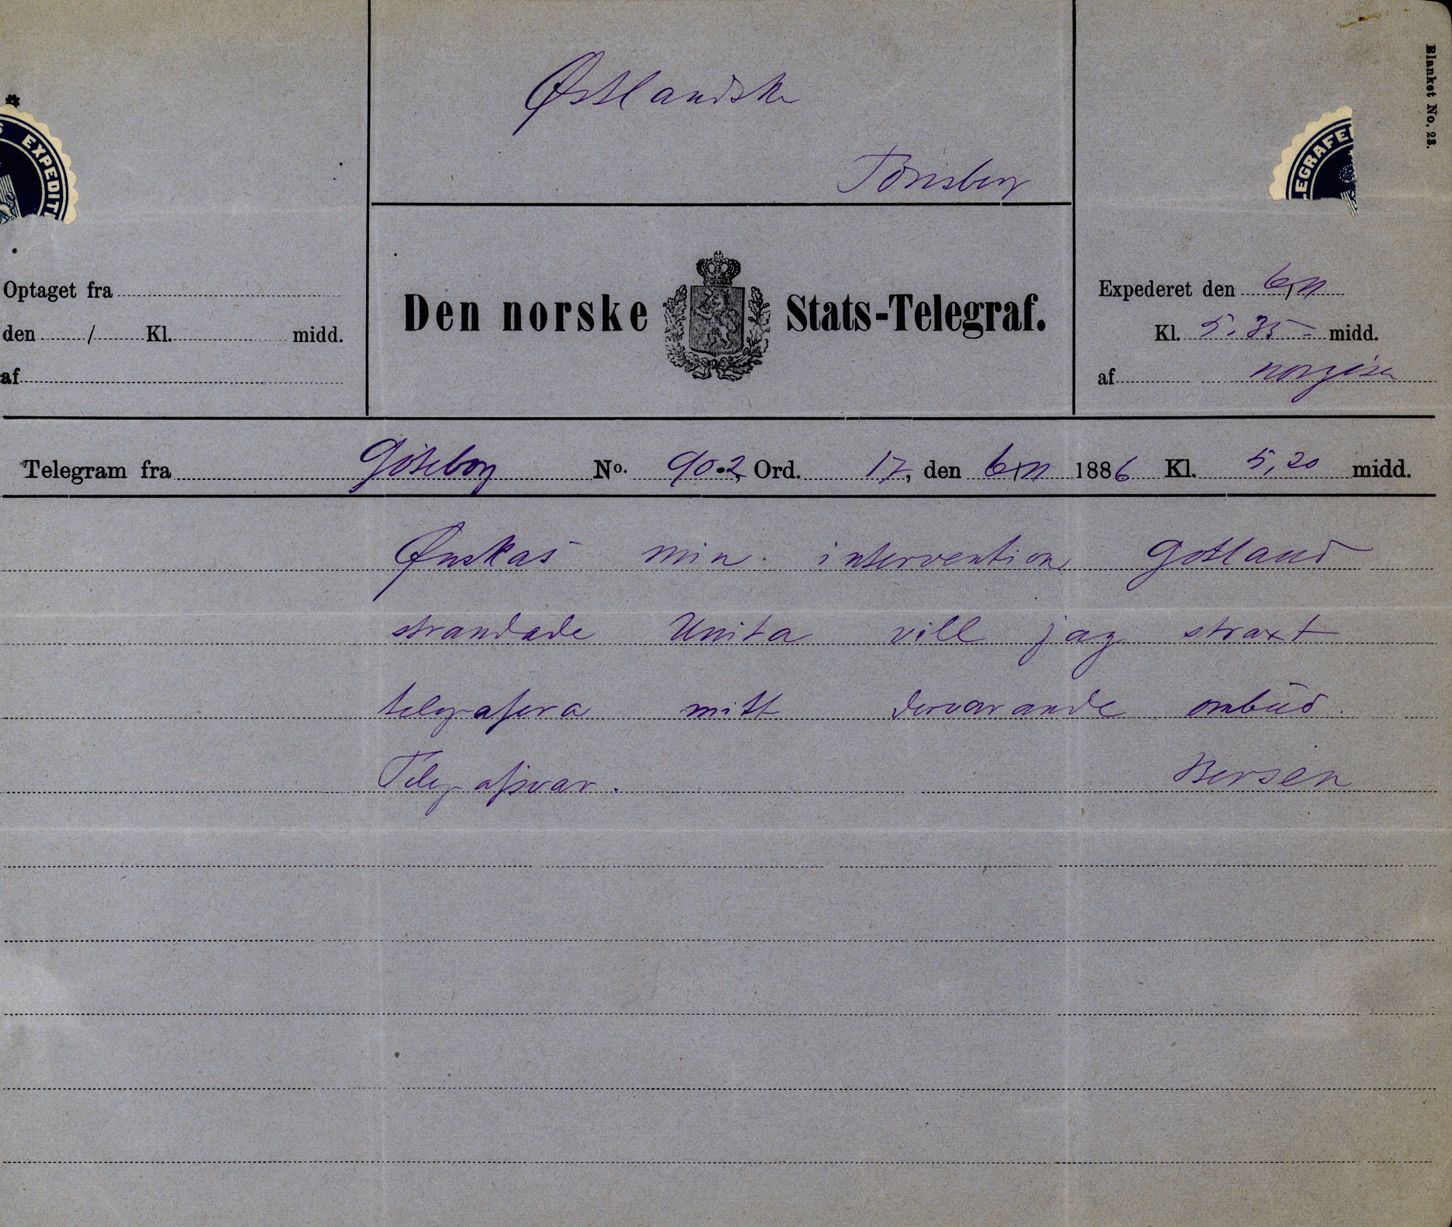 Østlandske
Tønsberg
Blanket No. 23.
S EXPEDIT
LEGRAFE
Optaget fra
den / Kl. midd.
af
Den norske Stats-Telegraf.
Expederet den 6/11
Kl. 5.35 midd.
af
Telegram fra Göteborg No. 90.2, Ord. 17, den 6/11 1886 Kl. 5,20 midd.
Ønskas min intervention Gotland
strandade Unita vill jag straxt
telegrafera mitt dervarande ombud.
Telegrafsvar. Bersén